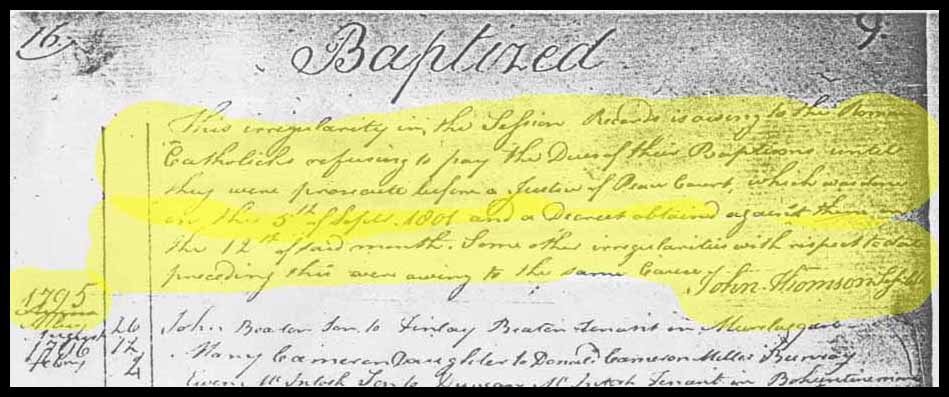 16. 9.
Baptized
This irregularity in the Session Records is owing to the Roman
Catholicks refusing to pay the Dues of their Baptisms, until
they were prosecute before a Justice of Peace Court, which was done
on the 5th of Septr. 1801 and a Decreet obtained against them on
the 12th of said month. Some other irregularities with respect to dates
preceding this were owing to the same Cause John Thomson
1795
26 John Beaton Son to Finlay Beaton Tenant in
1796 12 Mary Cameron Daughter to Donald Cameron Miller
Febry 4 Ewen McIntosh Son to Duncan McIntosh Tenant in